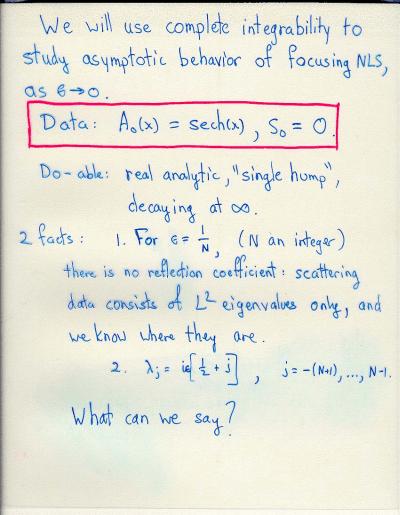 We will use complete integrability to
study asymptotic behavior of focusing NLS,
as ϵ→0.
Data: A₀(x) = sech(x), S₀ = 0.
Do-able: real analytic, "single hump",
decaying at ∞.
2 facts: 1. For ϵ = 1/N, (N an integer)
there is no reflection coefficient: scattering
data consists of L² eigenvalues only, and
we know where they are.
2. λⱼ = iϵ[1/2 + j], j = -(N+1), ..., N-1.
What can we say?